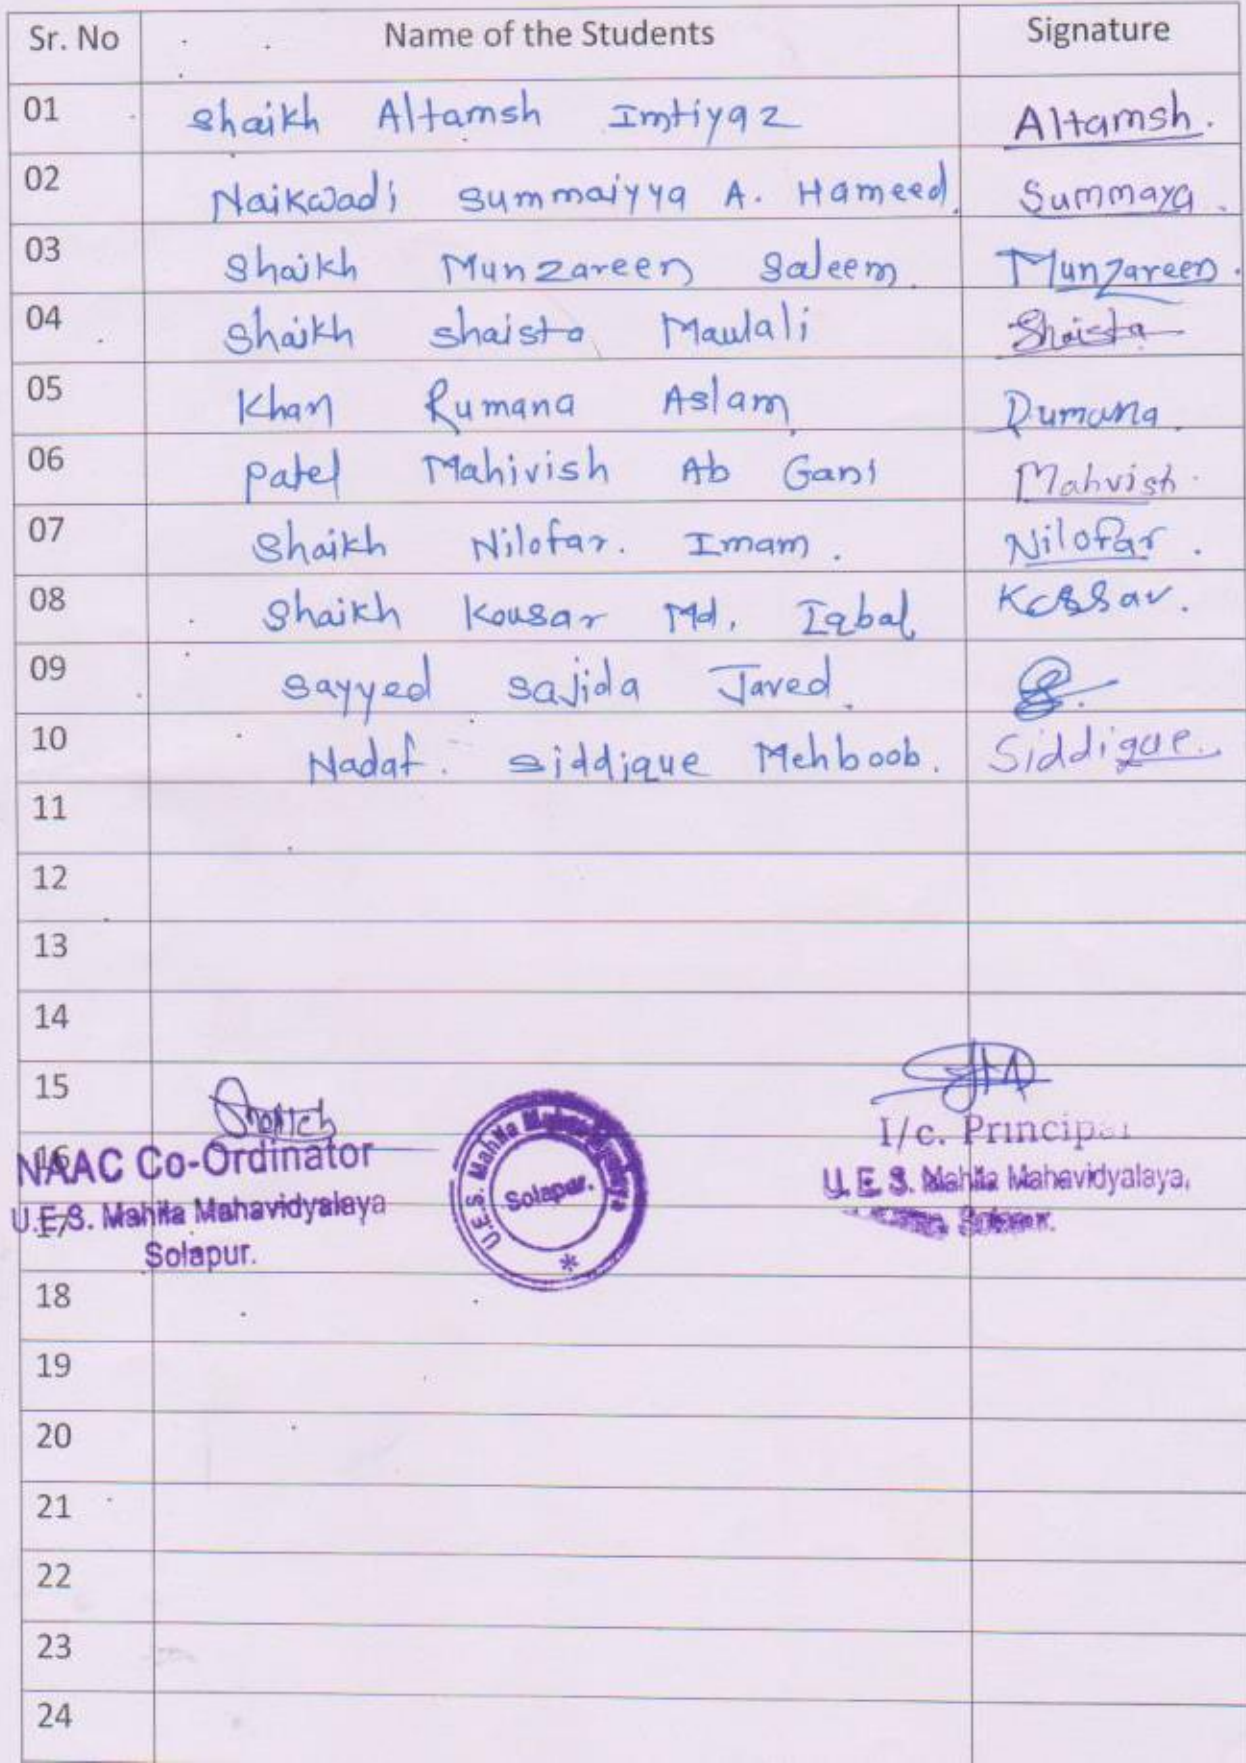 Sr. No Name of the Students Signature
01 Shaikh Altamsh Imtiyaz Altamsh.
02 Naikwadi Summaiyya A. Hameed. Summaya.
03 Shaikh Munzareen Saleem. Munzareen.
04 Shaikh Shaista Maulali Shaista
05 Khan Rumana Aslam. Rumana.
06 Patel Mahivish Ab Gani Mahvish.
07 Shaikh Nilofar. Imam. Nilofar.
08 Shaikh Kousar Md. Iqbal
09 Sayyed Sajida Javed.
10 Nadaf. Siddique Mehboob. Siddique.
11
12
13
14
15
16
NAAC Co-Ordinator
17
U.E.S. Mahila Mahavidyalaya
Solapur.
U.E.S. Mahila Mahavidyalaya
Solapur.
*
I/c. Principal
U.E.S. Mahila Mahavidyalaya,
Solapur.
18
19
20
21
22
23
24